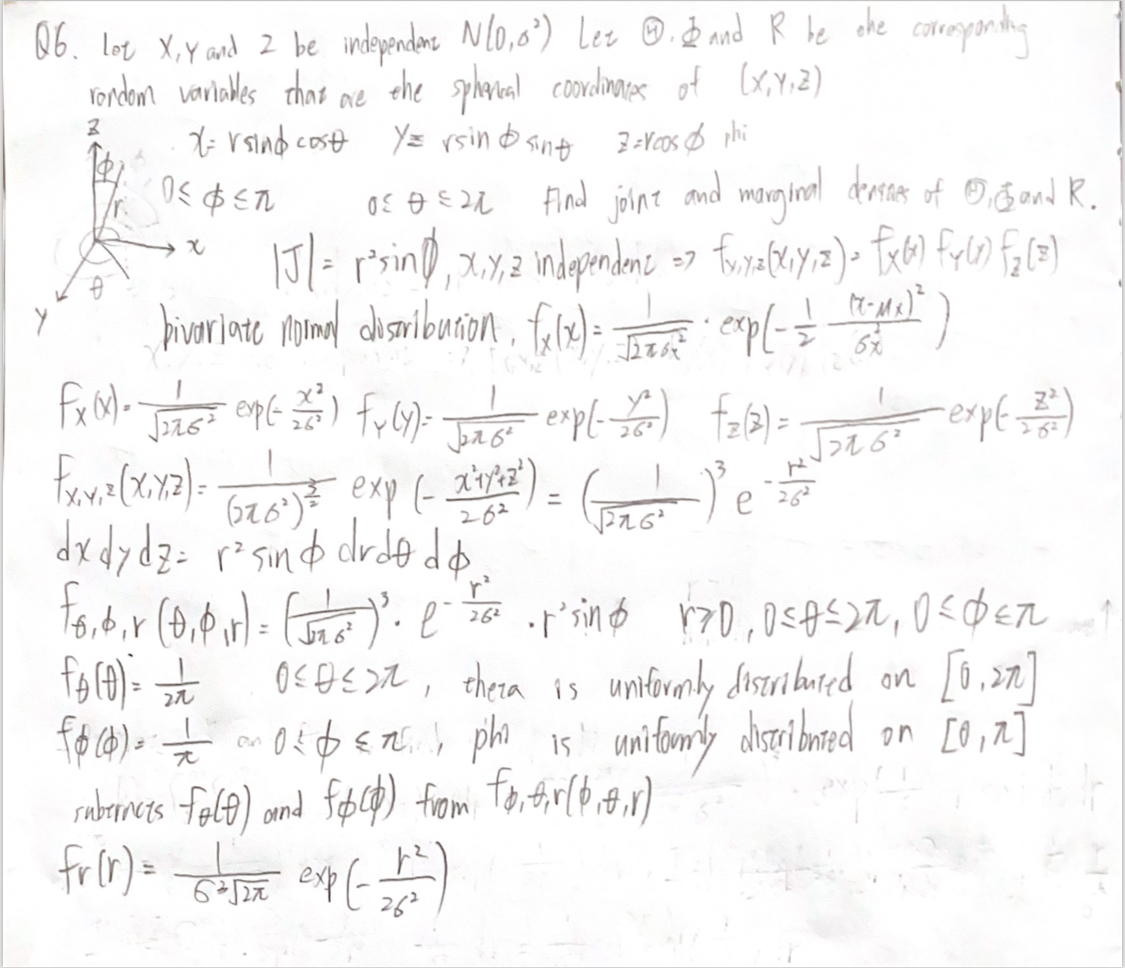 Q6. Let X, Y and Z be independent N(0,σ²) Let Θ, Φ and R be the corresponding
random variables that are the spherical coordinates of (X,Y,Z)
x = r sinϕ cosθ Y = r sin ϕ sinθ z = r cos ϕ phi
0 ≤ ϕ ≤ π 0 ≤ θ ≤ 2π Find joint and marginal densities of Θ, Φ and R.
z ϕ r x θ y
|J| = r² sin ϕ, x, y, z independent => f_{X,Y,Z}(x,y,z) = f_X(x) f_Y(y) f_Z(z)
bivariate normal distribution, f_X(x) = 1/√(2πσ_X²) · exp(-1/2 (x-μ_X)²/σ_X²)
f_X(x) = 1/√(2πσ²) exp(-x²/2σ²) f_Y(y) = 1/√(2πσ²) exp(-y²/2σ²) f_Z(z) = 1/√(2πσ²) exp(-z²/2σ²)
f_{X,Y,Z}(x,y,z) = 1/(2πσ²)^{3/2} exp(-(x²+y²+z²)/2σ²) = (1/√(2πσ²))³ e^{-r²/2σ²}
dx dy dz = r² sin ϕ dr dθ dϕ
f_{θ,ϕ,r}(θ,ϕ,r) = (1/√(2πσ²))³ · e^{-r²/2σ²} · r² sin ϕ r≥0, 0≤θ≤2π, 0≤ϕ≤π
f_θ(θ) = 1/2π 0≤θ≤2π, theta is uniformly distributed on [0,2π]
f_ϕ(ϕ) = 1/π on 0≤ϕ≤π, phi is uniformly distributed on [0,π]
subtracts f_θ(θ) and f_ϕ(ϕ) from f_{ϕ,θ,r}(ϕ,θ,r)
f_r(r) = 1/(σ³√2π) exp(-r²/2σ²)